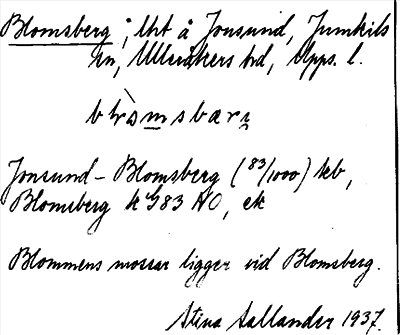 Blomsberg; lht å Jonsund, Jumkils
sn, Ulleråkers hd, Upps. l.
blòmsbæri
Jonsund – Blomsberg (83/1000) kb,
Blomsberg k G83 NO, ek
Blommens mossar ligger vid Blomsberg.
Stina Sallander 1937.